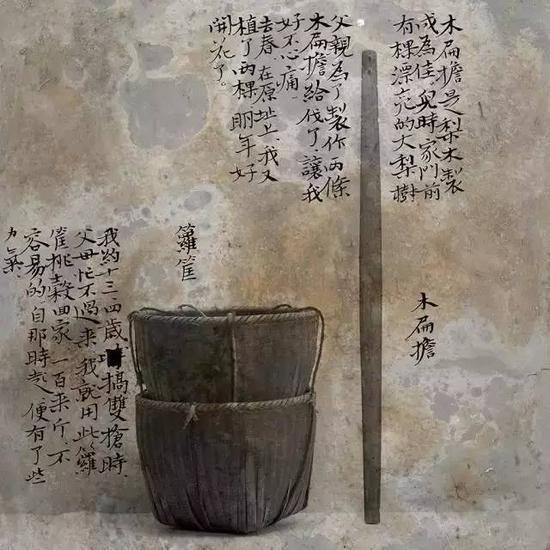 木扁擔是梨木製
成為佳兒時家門前
有棵漂亮的大梨樹
父親為了製作兩條
木扁擔給伐了讓我
好不心痛
去春在原址上我又
植了兩棵明年好
開花了。
木扁擔
籮筐
我約十三四歲搞雙搶時
父母忙不過来我就用此籮
筐挑穀回家一百来斤不
容易的自那時起便有了些
力氣